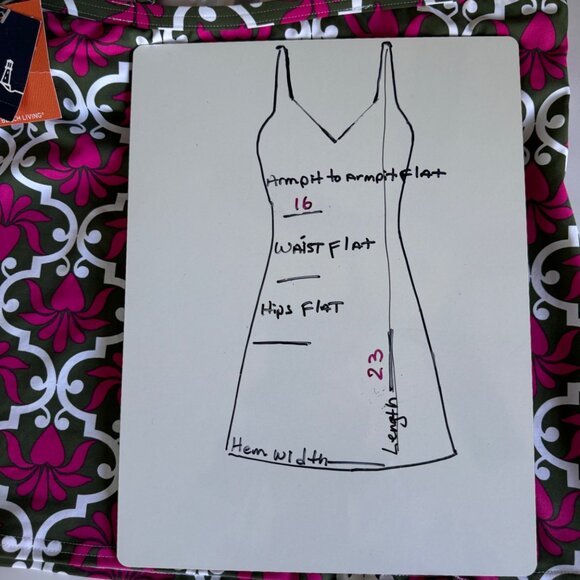 BEACH LIVING®
Armpit to Armpit Flat
16
WAIST FLAT
Hips FLAT
23
Length
Hem width